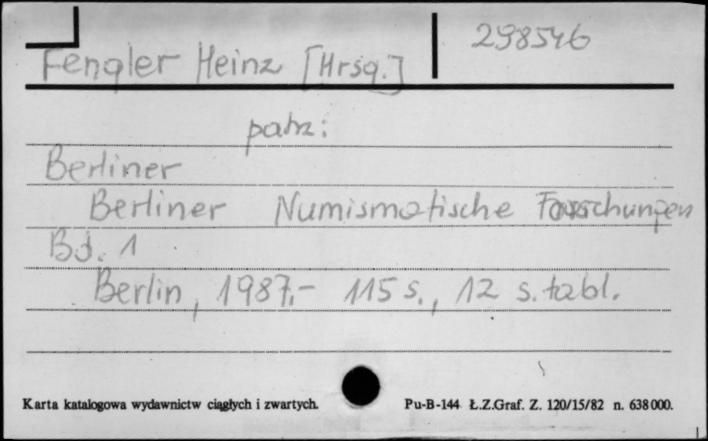 Fengler Heinz [Hrsg.] 298546
patrz:
Berliner
Berliner Numismatische Forschungen
Bd. 1
Berlin, 1987,- 115 s., 12 s. tabl.
Karta katalogowa wydawnictw ciągłych i zwartych. Pu-B-144 Ł.Z.Graf. Z. 120/15/82 n. 638000.